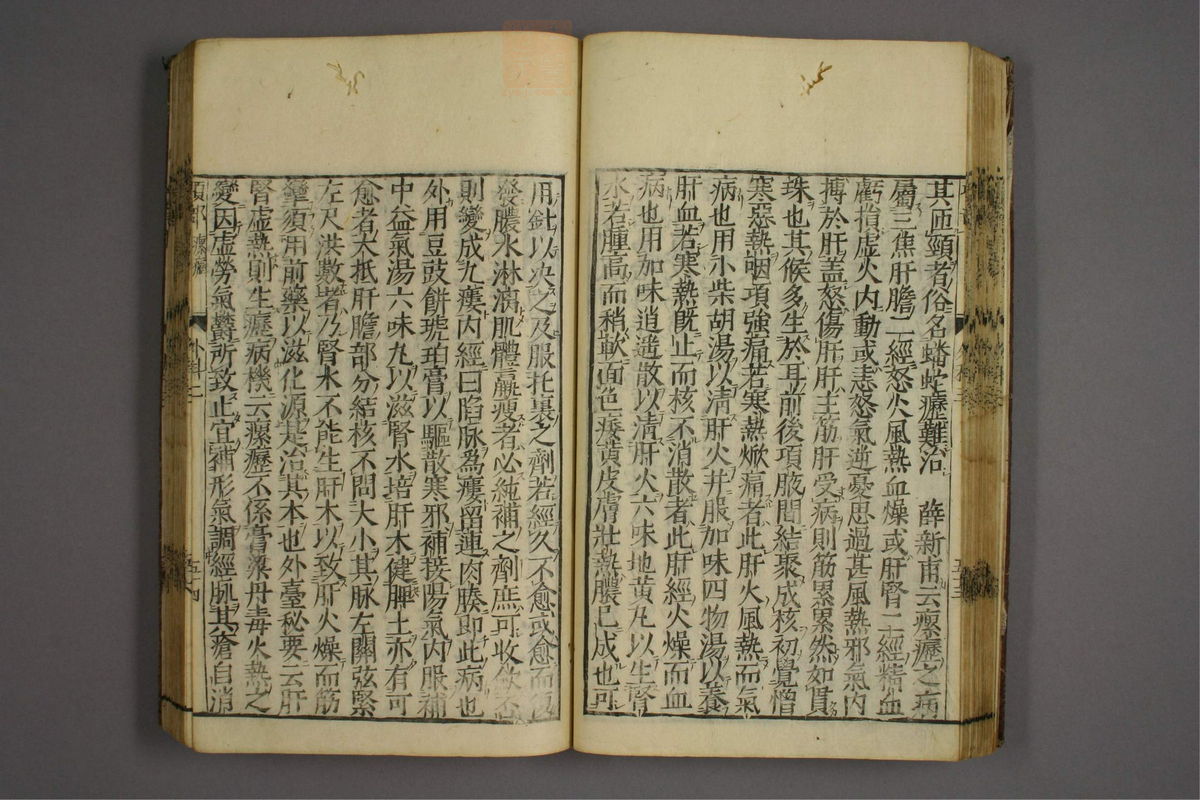 其匝頸者俗名蟠蛇癧難治　薛新甫云瘰癧之病
屬三焦肝膽二經怒火風熱血燥或肝腎二經精血
虧損虛火内動或恚怒氣逆憂思過甚風熱邪氣内
搏於肝蓋怒傷肝肝主筋肝受病則筋累累然如貫
珠也其候多生於耳前後項腋間結聚成核初覺憎
寒惡熱咽項強痛若寒熱焮痛者此肝火風熱而氣
病也用小柴胡湯以清肝火并服加味四物湯以養
肝血若寒熱既止而核不消散者此肝經火燥而血
病也用加味逍遙散以清肝火六味地黄丸以生腎
水若腫高而稍軟面色痿黄皮膚壯熱膿已成也可
用針以决之及服托裏之劑若經久不愈或愈而復
發膿水淋漓肌體羸瘦者必純補之劑庶可收歛否
則變成九瘻内經曰陷脉爲瘻留連肉腠即此病也
外用豆豉餅琥珀膏以驅散寒邪補接陽氣内服補
中益氣湯六味丸以滋腎水培肝木健脾土亦有可
愈者大抵肝膽部分結核不問大小其脉左關弦緊
左尺洪數者乃腎水不能生肝木以致肝火燥而筋
攣須用前藥以滋化源是治其本也外臺秘要云肝
腎虛熱則生癧病機云瘰癧不係膏粱丹毒火熱之
變因虛勞氣鬱所致止宜補形氣調經脉其瘡自消
項部　瘰癧　外科二